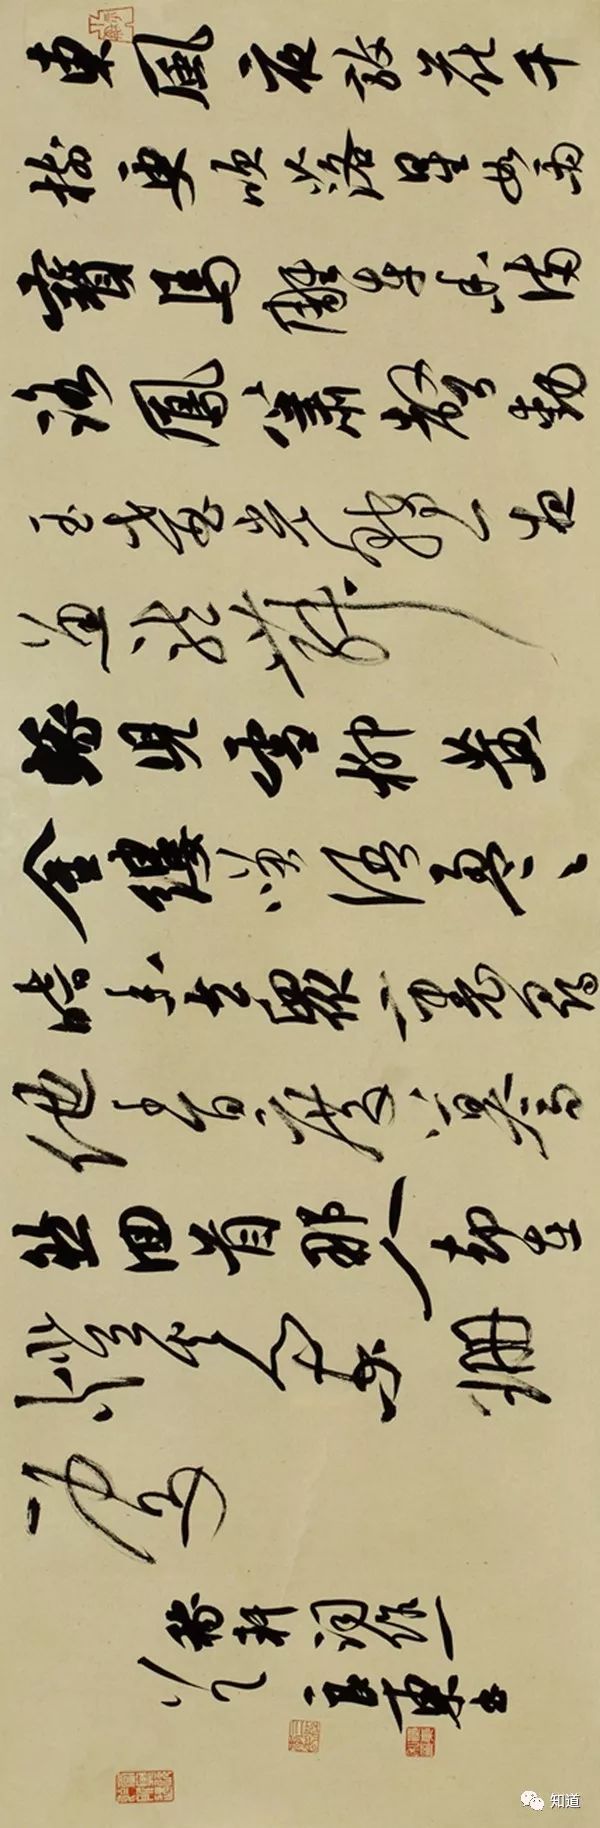 東風夜放花千
樹更吹落星如雨
寶馬雕車香滿
路鳳簫聲動
玉壺光轉一夜
魚龍舞
蛾兒雪柳黃
金縷笑語盈、
暗香去眾裏尋
他千百度驀
然回首那人卻在
燈火闌珊
處
稼軒詞
東書
知道